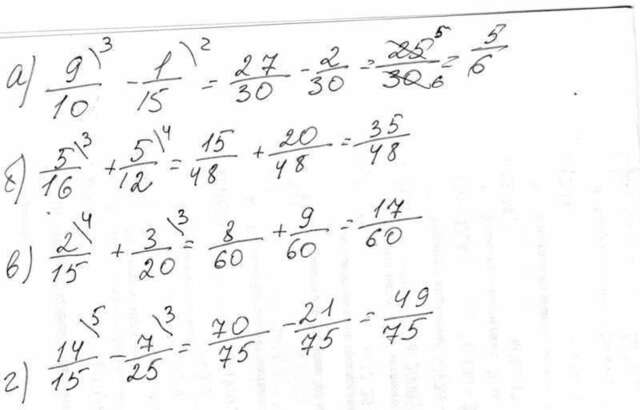 а) 9\3/10 - 1\2/15 = 27/30 - 2/30 = 25 5/30 6 = 5/6
б) 5\3/16 + 5\4/12 = 15/48 + 20/48 = 35/48
в) 2\4/15 + 3\3/20 = 8/60 + 9/60 = 17/60
г) 14\5/15 - 7\3/25 = 70/75 - 21/75 = 49/75